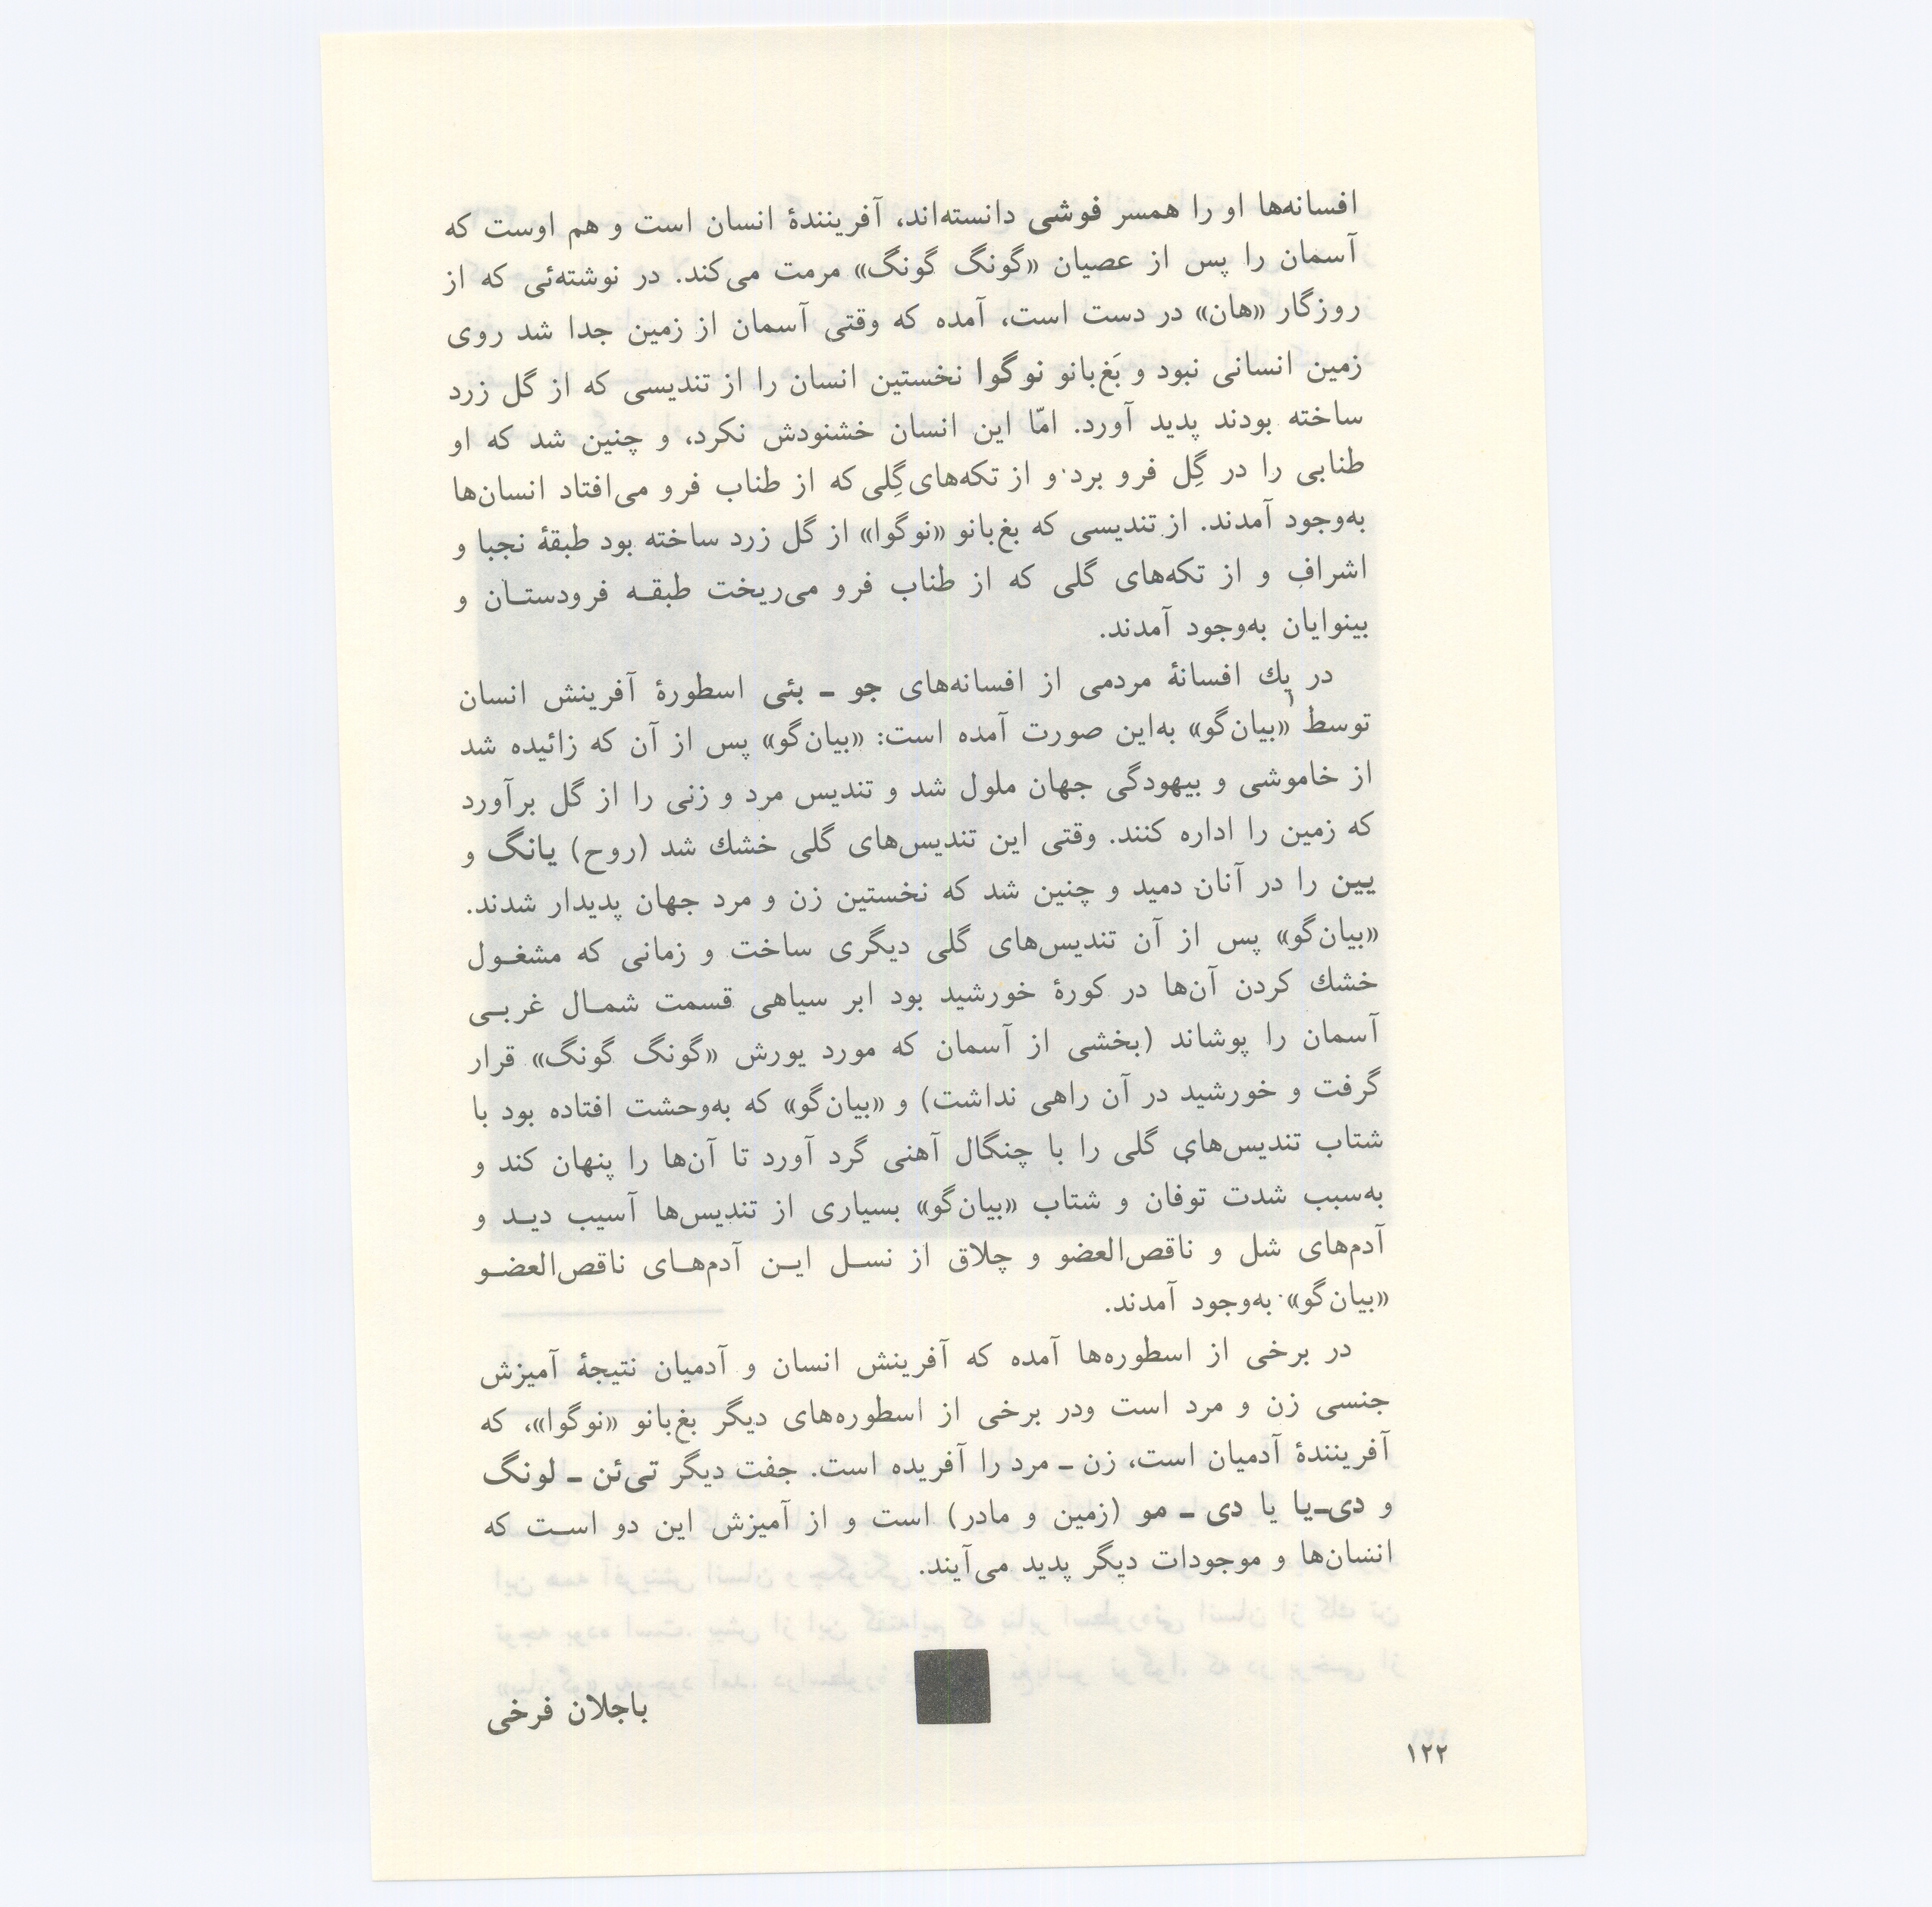 افسانه‌ها او را همسر فوشی دانسته‌اند، آفرینندهٔ انسان است و هم اوست که
آسمان را پس از عصیان «گونگ گونگ» مرمت می‌کند. در نوشته‌ئی که از
روزگار «هان» در دست است، آمده که وقتی آسمان از زمین جدا شد روی
زمین انسانی نبود و بَغ‌بانو نوگوا نخستین انسان را از تندیسی که از گل زرد
ساخته بودند پدید آورد. امّا این انسان خشنودش نکرد، و چنین شد که او
طنابی را در گِل فرو برد و از تکه‌های گِلی که از طناب فرو می‌افتاد انسان‌ها
به‌وجود آمدند. از تندیسی که بغ‌بانو «نوگوا» از گل زرد ساخته بود طبقهٔ نجبا و
اشراف و از تکه‌های گلی که از طناب فرو می‌ریخت طبقـه فرودستـان و
بینوایان به‌وجود آمدند.
در یك افسانهٔ مردمی از افسانه‌های جو ـ بئی اسطورهٔ آفرینش انسان
توسط «بیان‌گو» به‌این صورت آمده است: «بیان‌گو» پس از آن که زائیده شد
از خاموشی و بیهودگی جهان ملول شد و تندیس مرد و زنی را از گل برآورد
که زمین را اداره کنند. وقتی این تندیس‌های گلی خشك شد (روح) یانگ و
یین را در آنان دمید و چنین شد که نخستین زن و مرد جهان پدیدار شدند.
«بیان‌گو» پس از آن تندیس‌های گلی دیگری ساخت و زمانی که مشغـول
خشك کردن آن‌ها در کورهٔ خورشید بود ابر سیاهی قسمت شمـال غربـی
آسمان را پوشاند (بخشی از آسمان که مورد یورش «گونگ گونگ» قرار
گرفت و خورشید در آن راهی نداشت) و «بیان‌گو» که به‌وحشت افتاده بود با
شتاب تندیس‌های گلی را با چنگال آهنی گرد آورد تا آن‌ها را پنهان کند و
به‌سبب شدت توفان و شتاب «بیان‌گو» بسیاری از تندیس‌ها آسیب دیـد و
آدم‌های شل و ناقص‌العضو و چلاق از نسـل ایـن آدم‌هـای ناقص‌العضـو
«بیان‌گو» به‌وجود آمدند.
در برخی از اسطوره‌ها آمده که آفرینش انسان و آدمیان نتیجهٔ آمیزش
جنسی زن و مرد است ودر برخی از اسطوره‌های دیگر بغ‌بانو «نوگوا»، که
آفرینندهٔ آدمیان است، زن ـ مرد را آفریده است. جفت دیگر تی‌ئن ـ لونگ
و دی‌ـ‌یا یا دی ـ مو (زمین و مادر) است و از آمیزش این دو اسـت که
انسان‌ها و موجودات دیگر پدید می‌آیند.
باجلان فرخی
۱۲۲